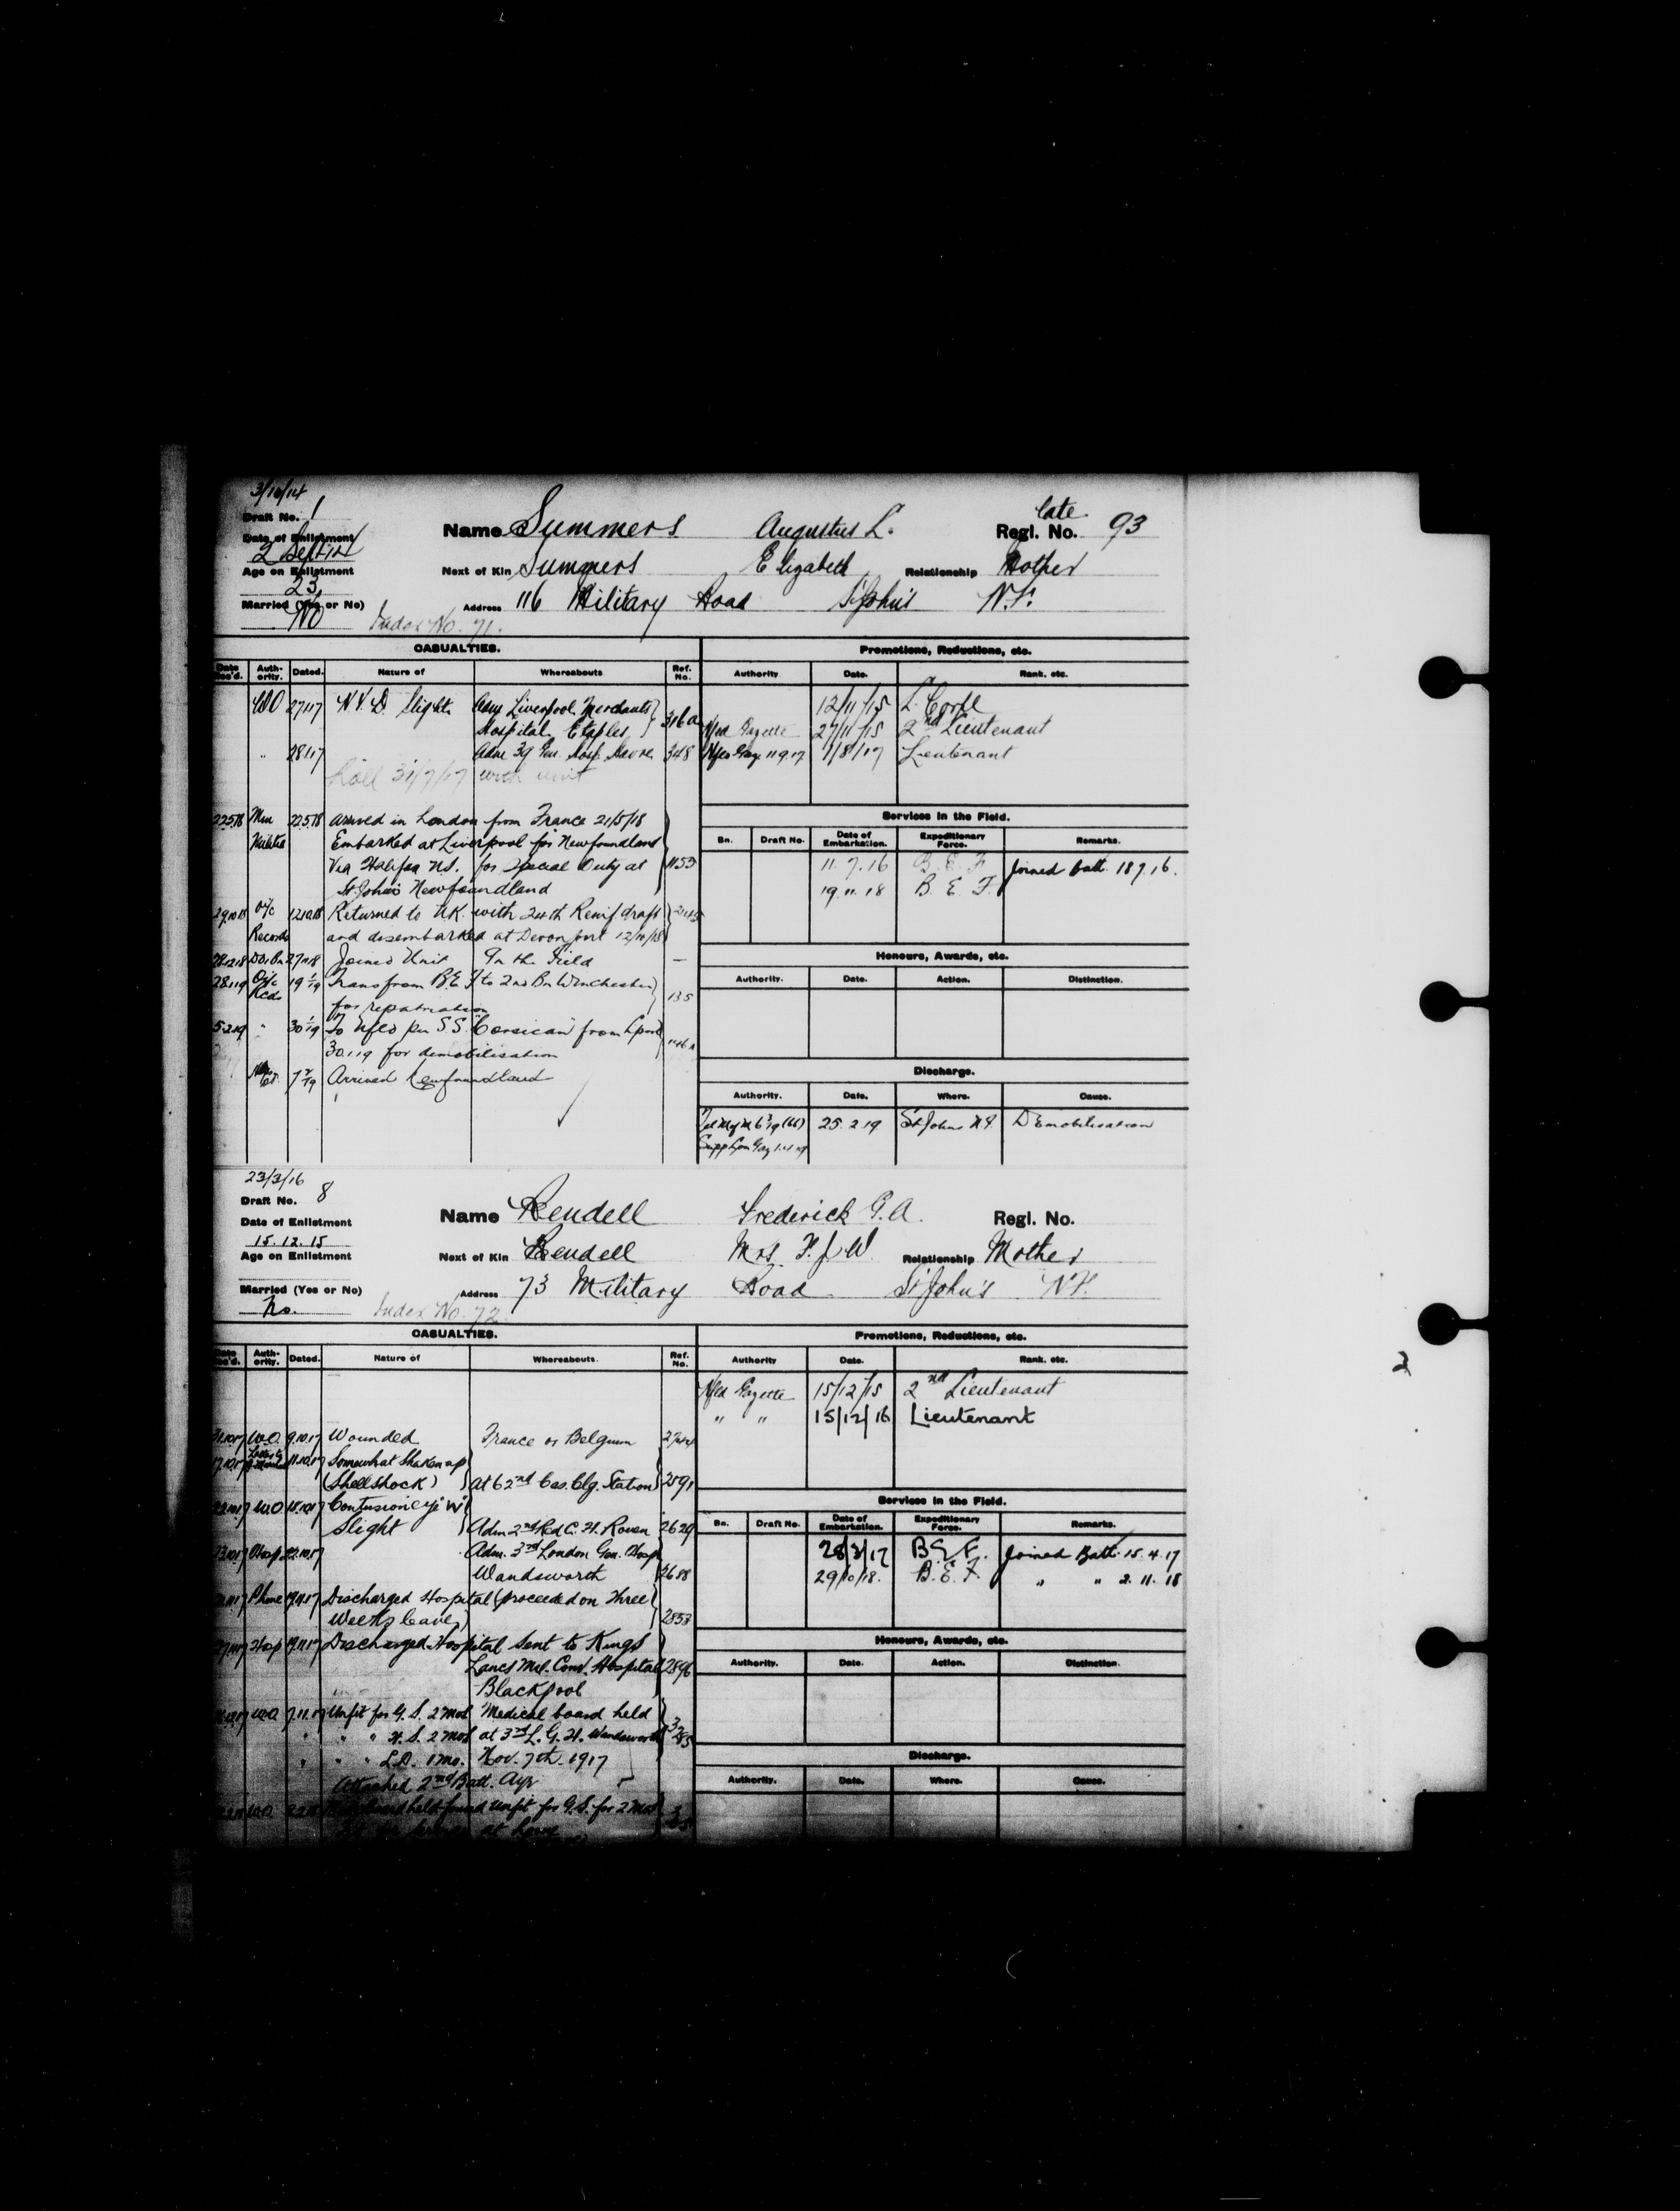 3/10/14
Draft No. 1
Date of Enlistment
2 Sept 14
Age on Enlistment
23
Married (Yes or No)
No
Index No. 71.
Name Summers Augustus L. late Regl. No. 93
Next of Kin Summers Elizabeth Relationship Mother
Address 116 Military Road St John's N.F.
CASUALTIES.
Date Rec'd. Auth- ority. Dated. Nature of Whereabouts Ref. No.
WO 27.1.17 N.Y.D. Slight Adm Liverpool Merchants
Hospital, Etaples 316a
" 28.1.17 Adm 39 Gen. Hosp. Havre 348
Roll 31/7/17 with unit
22.5.18 Min 22.5.18 Arrived in London from France 21/5/18
Militia Embarked at Liverpool for Newfoundland
Via Halifax N.S. for Special Duty at 1153
St. John's Newfoundland
29.10.18 O/c 12.10.18 Returned to U.K. with 24th Reinf. draft
Records and disembarked at Devonport 12/10/18
28.12.18 27.11.18 Joined Unit In the Field —
28.1.19 O/c Rcds 19 1/19 Trans from B.E.F to 2nd Bn Winchester
for repatriation 135
5.2.19 " 30 1/19 To Nfld per S.S. "Corsican" from Lpool
30.1.19 for demobilisation
7 2/19 Arrived Newfoundland
Promotions, Reductions, etc.
Authority Date. Rank. etc.
12/11/15 L. Corpl
Nfld Gazette 27/11/15 2nd Lieutenant
Nfld Gaz. 11.9.17 1/8/17 Lieutenant
Services in the Field.
Bn. Draft No. Date of Embarkation. Expeditionary Force. Remarks.
11.7.16 B.E.F. Joined batt. 18.7.16.
19.11.18 B.E.F.
Honours, Awards, etc.
Authority. Date. Action. Distinction.
Discharge.
Authority. Date. Where. Cause.
25.2.19 St. Johns N.F. Demobilisation
23/3/16
Draft No. 8
Date of Enlistment
15.12.15
Age on Enlistment
Married (Yes or No)
No.
Index No. 72.
Name Rendell Frederick G.A. Regl. No.
Next of Kin Rendell Mrs. F.J.W. Relationship Mother
Address 73 Military Road St John's N.F.
CASUALTIES.
Date Rec'd. Auth- ority. Dated. Nature of Whereabouts. Ref. No.
W.O. 9.10.17 Wounded France or Belgium
17.10.17 11.10.17 Somewhat Shaken up
(Shellshock) At 62nd Cas. Clg. Station 2591
W.O. 18.10.17 Contusion eye
Slight Adm 2nd Red C. H. Rouen 2629
23.10.17 Hosp 22.10.17 Adm. 3rd London Gen. Hosp
Wandsworth 2688
Phone Discharged Hospital (proceeded on Three
Weeks leave) 2853
Hosp Discharged Hospital Sent to Kings
Lancs Mil. Conv. Hospital 2896
Blackpool
W.O. 7.11.17 Unfit for G.S. 2 Mos Medical board held
" " " H.S. 2 Mos at 3rd L.G.H. Wandsworth
" " " L.D. 1 Mo. Nov. 7th. 1917
Attached 2nd Batt. Ayr
W.O. board held found unfit for G.S. for 2 Mos
at home
Promotions, Reductions, etc.
Authority Date. Rank. etc.
Nfld Gazette 15/12/15 2nd Lieutenant
" " 15/12/16 Lieutenant
Services in the Field.
Bn. Draft No. Date of Embarkation. Expeditionary Force. Remarks.
28/3/17 B.E.F. Joined Batt. 15.4.17
29/10/18. B.E.F. " " 2.11.18
Honours, Awards, etc.
Authority. Date. Action. Distinction.
Discharge.
Authority. Date. Where. Cause.
2